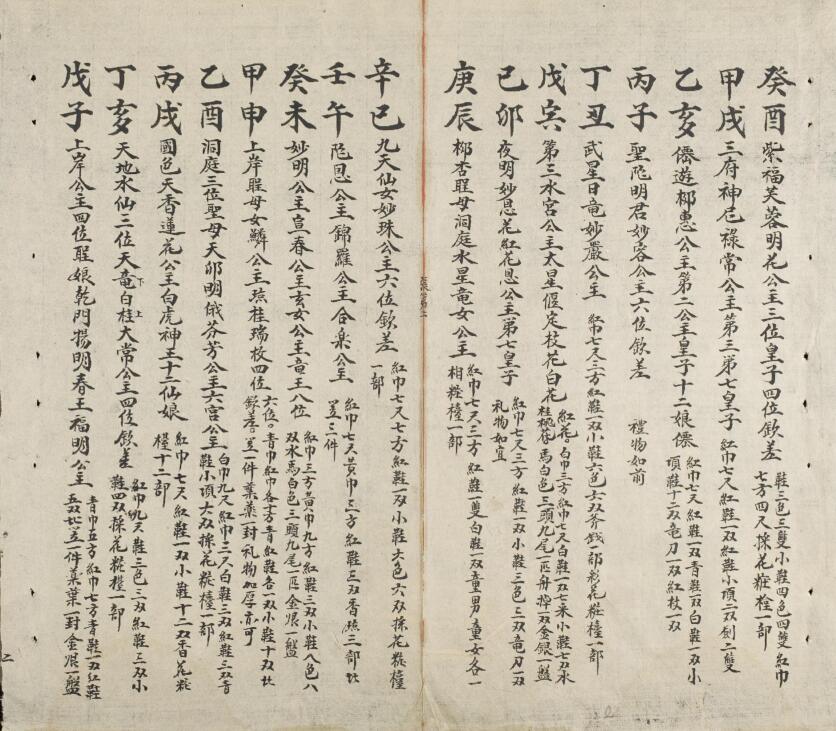 癸酉 紫福芙蓉明花公主三位皇子四位欽差 鞋三色三隻小鞋四色四隻紅巾
七方四尺採花粧栓一部
甲戌 三府神 祿常公主第三第七皇子 紅巾七尺紅鞋一双紅鞋小項二双劍二隻
乙亥 僊遊椰惠公主第二公主皇子十二娘僊 紅巾七尺紅鞋一双青鞋一双白鞋一双小
項鞋十二双竜刀一双紅枚一双
丙子 聖 明君妙容公主六位欽差 禮物如前
丁丑 武星日竜妙嚴公主 紅巾七尺三方紅鞋一双小鞋六色六双斧鉞一部彩花粧檯一部
戊寅 第三水宮公主太星偃定枝花白花 紅花白巾三方紅巾七尺白鞋一双七采小鞋七双水
桂桃 馬白色三頭九尾一匹舟掉一双金銀一盤
己卯 夜明妙恩花紅花恩公主第七皇子 紅巾七尺三方紅鞋一双小鞋三色三双竜刀一双
礼物如宜
庚辰 椰杏聖母洞庭水星竜女公主 紅巾七尺三方紅鞋一隻白鞋一双童男童女各一
相粧檯一部
辛巳 九天仙女妙珠公主六位欽差 紅巾七尺七方紅鞋一双小鞋六色六双採花粧檯
一部
壬午 恩公主錦羅公主合樂公主 紅巾七尺黃巾三方紅鞋三双香 三部
笠三件
癸未 妙明公主宣春公主玄女公主竜王八位 紅巾三方黃巾九方紅鞋三双小鞋八色八
双水馬白色三頭九尾一匹金銀一盤
甲申 上岸聖母女鱗公主 桂瑞枚四位 六位青巾紅巾各七方青紅鞋各一双小鞋十双
欽差笠一件葉葉一封礼物加厚亦可
乙酉 洞庭三位聖母天卯明俄芬芳公主六宮公主 白巾九尺紅巾二尺白鞋三双紅鞋三双青
鞋小項六双採花粧檯一部
丙戌 國色天香蓮花公主白虎神王十二仙娘 紅巾七尺紅鞋一双小鞋十二双香花粧
檯十二部
丁亥 天地水仙三位天竜下白桂上大常公主四位欽差 紅巾九尺鞋三色三双紅鞋三双小
鞋四双採花粧檯一部
戊子 上岸公主四位聖娘乾門揚明春王福明公主 青巾五方紅巾七方青鞋一双紅鞋
五双 笠一件葉葉一封金銀一盤
二